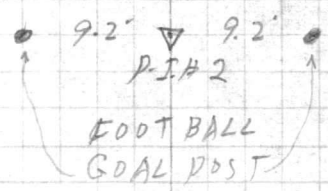 9.2' 9.2'
P.I.#2
FOOTBALL
GOAL POST